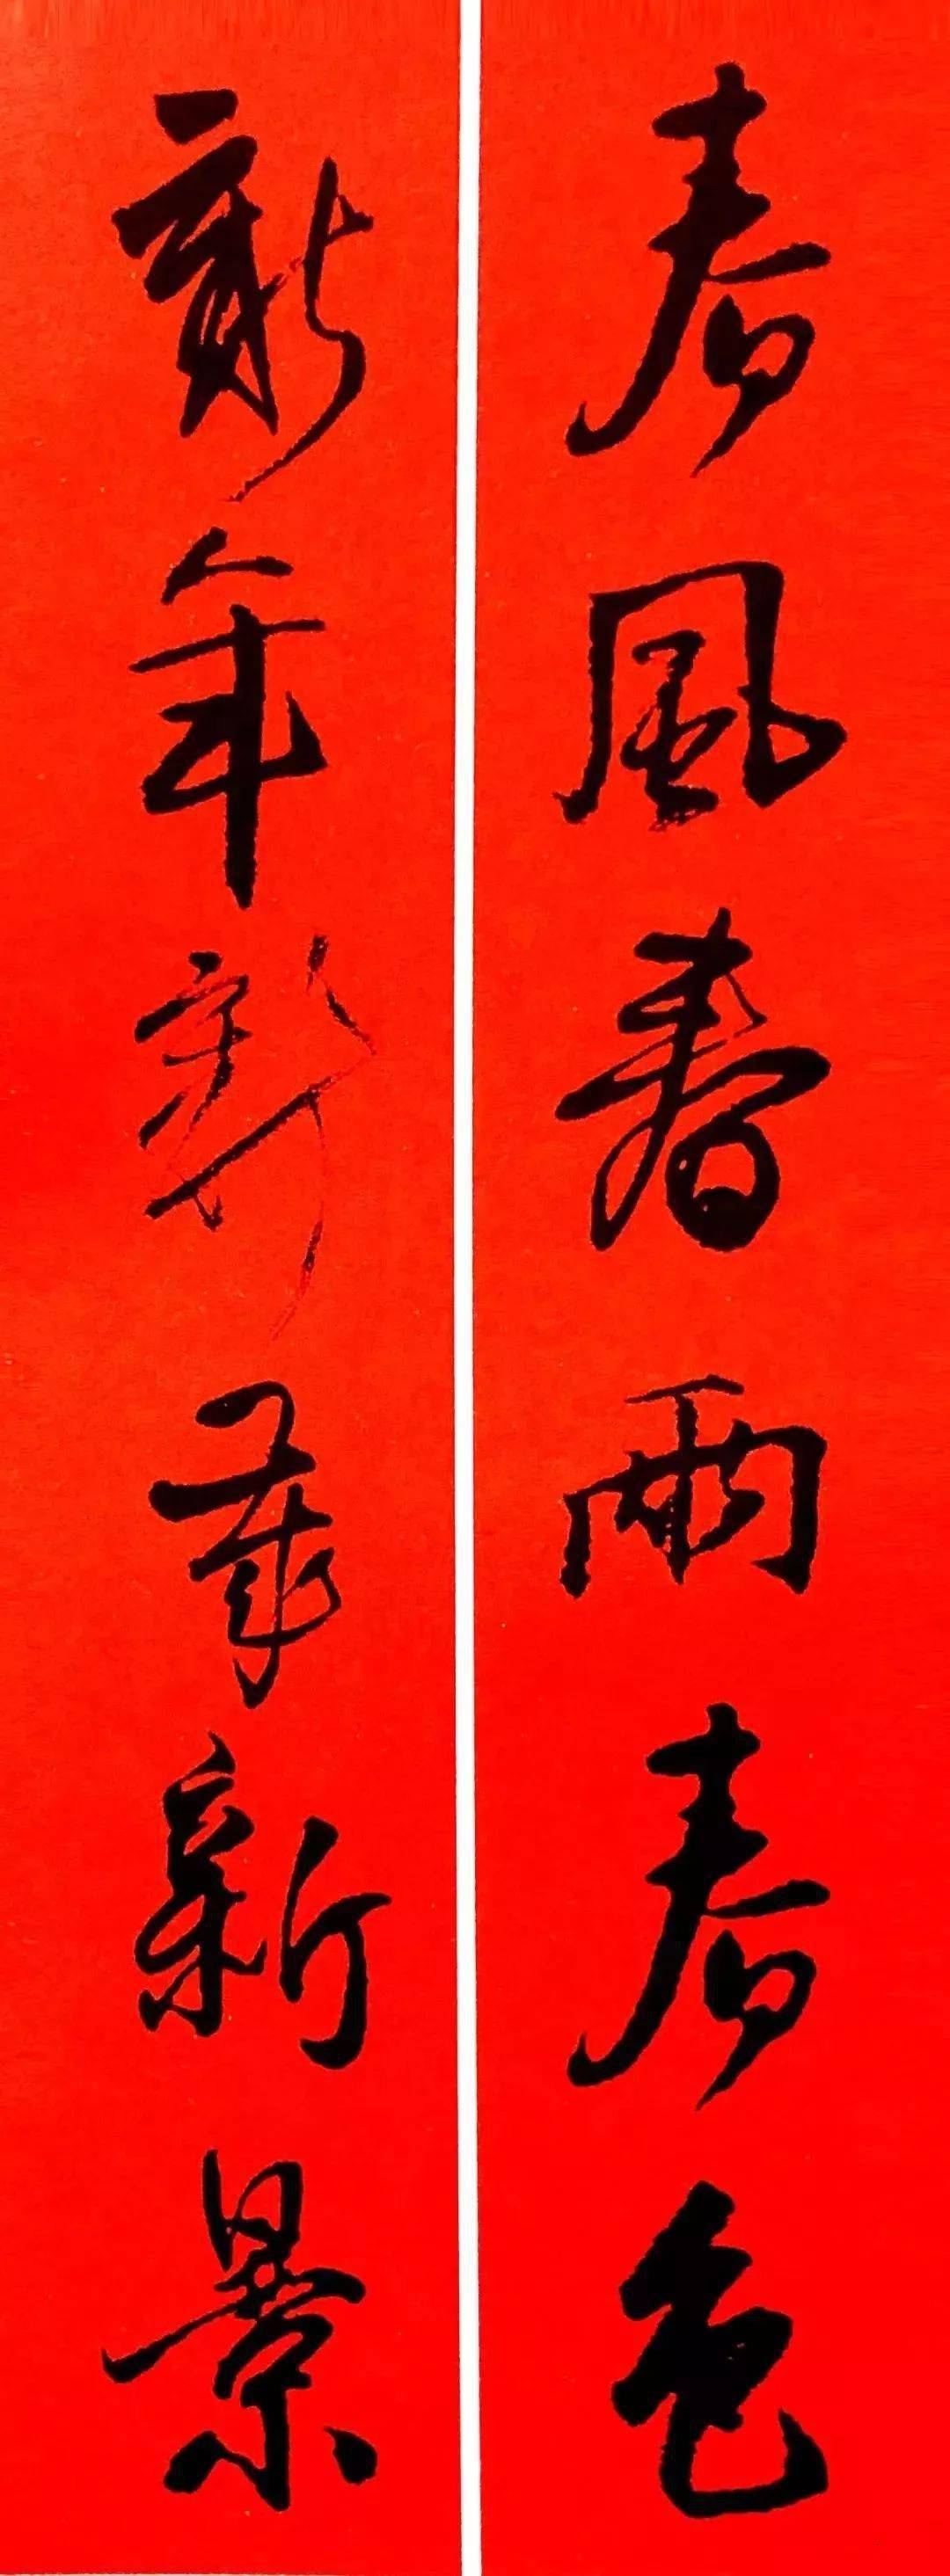 春風春雨春色
新年新歲新景